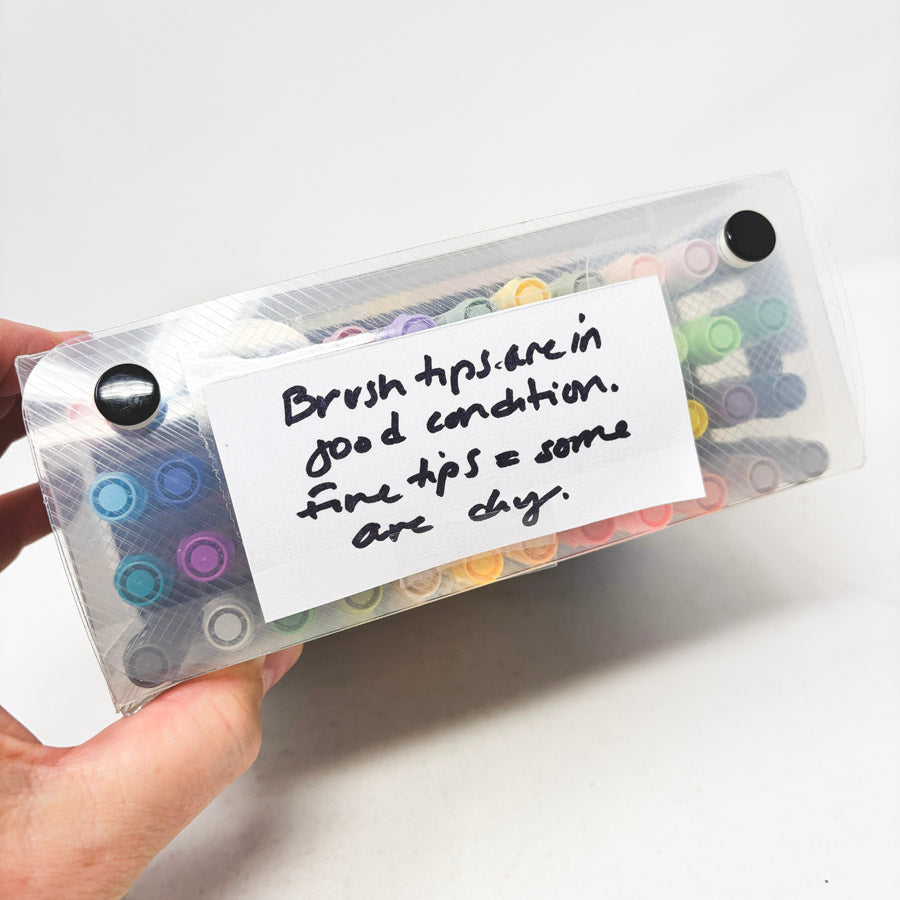 Brush tips are in
good condition.
Fine tips = some
are dry.